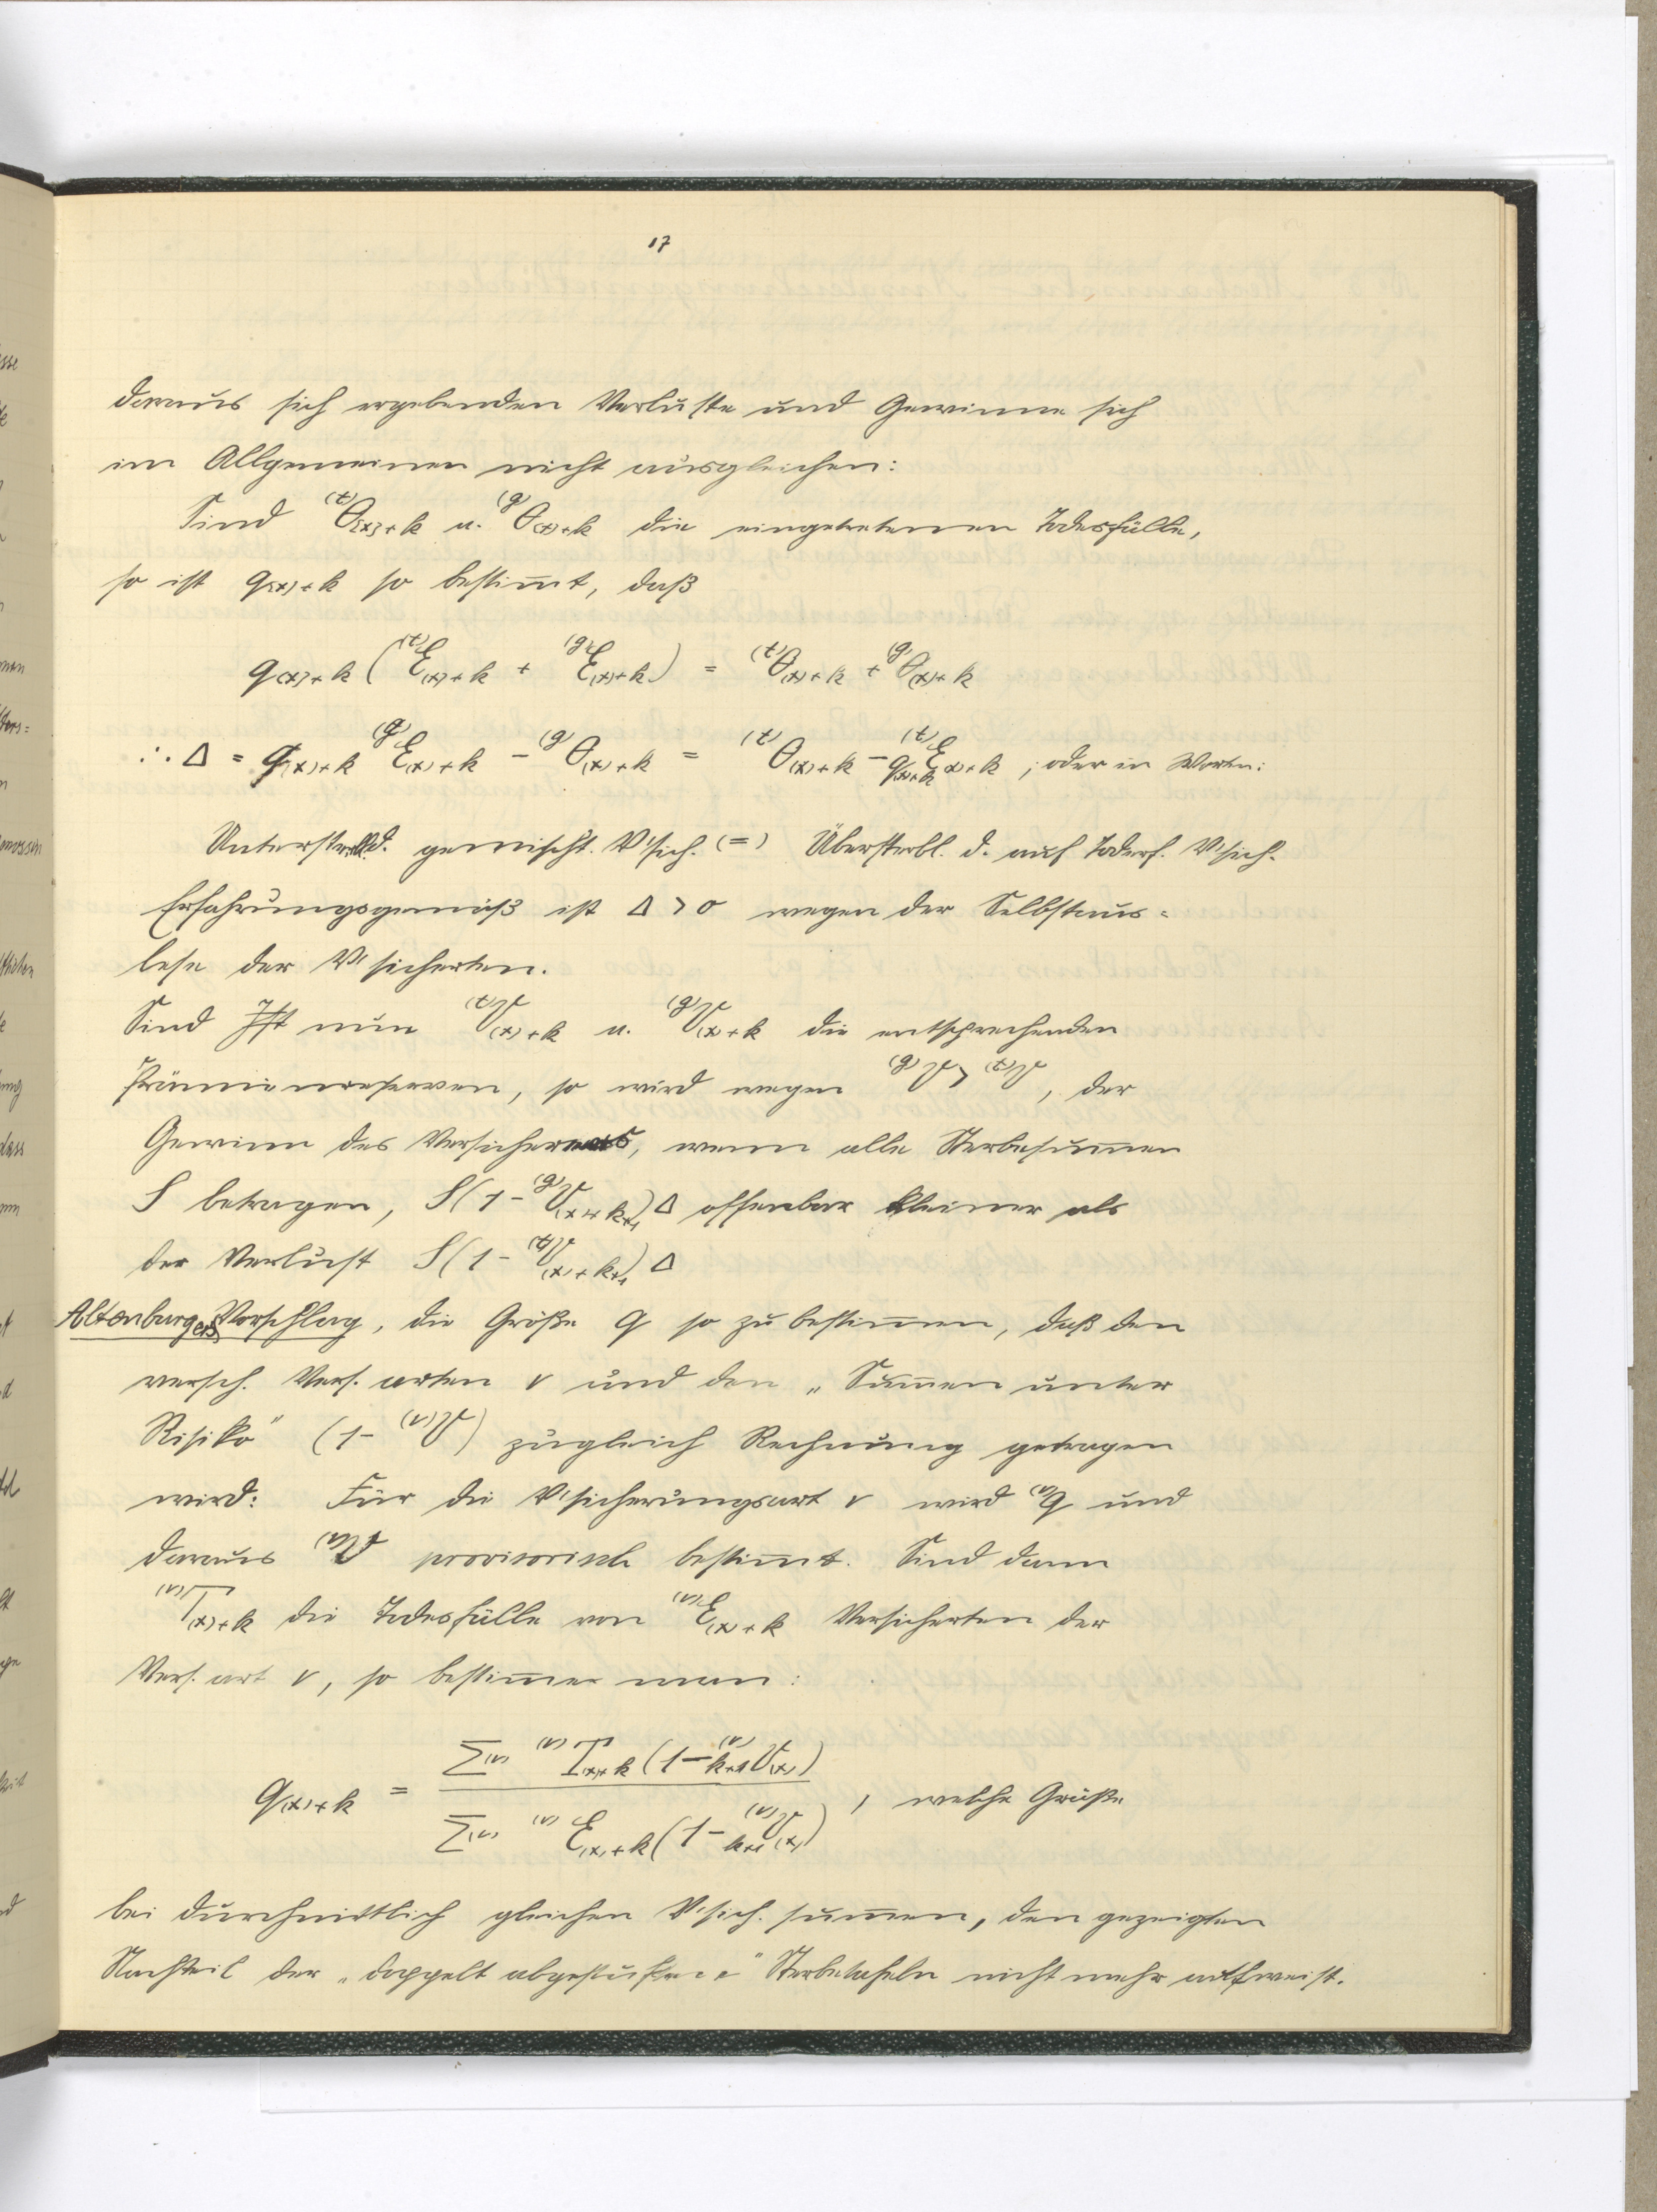 17
daraus sich ergebenden Verluste und Gewinne sich
im Allgemeinen nicht ausgleichen:
Sind ⁽ᵗ⁾θ₍ₓ₎₊ₖ u. ⁽ᵍ⁾θ₍ₓ₎₊ₖ die eingetretenen Todesfälle,
so ist q₍ₓ₎₊ₖ so bestim̅t, daß
q₍ₓ₎₊ₖ (⁽ᵗ⁾Ɛ₍ₓ₎₊ₖ + ⁽ᵍ⁾Ɛ₍ₓ₎₊ₖ) = ⁽ᵗ⁾θ₍ₓ₎₊ₖ + ⁽ᵍ⁾θ₍ₓ₎₊ₖ
∴ Δ = q₍ₓ₎₊ₖ ⁽ᵍ⁾Ɛ₍ₓ₎₊ₖ − ⁽ᵍ⁾θ₍ₓ₎₊ₖ = ⁽ᵗ⁾θ₍ₓ₎₊ₖ − q₍ₓ₎₊ₖ ⁽ᵗ⁾Ɛ₍ₓ₎₊ₖ ; oder in Worten:
Unterstrbl. d. gemischt. V'sich. (=) Übersterbl. d. auf Todesf. V'sich.
Erfahrungsgemäß ist Δ > 0 wegen der Selbstaus=
lese der V'sicherten.
Sind Ist nun ⁽ᵗ⁾V₍ₓ₎₊ₖ u. ⁽ᵍ⁾V₍ₓ₎₊ₖ die entsprechenden
Prämienreserven, so wird wegen ⁽ᵍ⁾V > ⁽ᵗ⁾V, der
Gewinn des Versicherers, wenn alle Sterbesum̅en
S betragen, S(1 − ⁽ᵍ⁾V₍ₓ₎₊ₖ₊₁) Δ offenbar kleiner als
der Verlust S(1 − ⁽ᵗ⁾V₍ₓ₎₊ₖ₊₁) Δ
Altenburgers Vorschlag, die Größe q so zu bestim̅en, daß den
versch. Vers. arten ν und den „Sum̅en unter
Risiko" (1 − ⁽ᵛ⁾V) zugleich Rechnung getragen
wird: Für die V'sicherungsart ν wird ⁽ᵛ⁾q und
daraus ⁽ᵛ⁾V provisorisch bestim̅t. Sind dann
⁽ᵛ⁾T₍ₓ₎₊ₖ die Todesfälle von ⁽ᵛ⁾Ɛ₍ₓ₎₊ₖ Versicherten der
Vers. art ν, so bestim̅e man:
q₍ₓ₎₊ₖ = Σ⁽ᵛ⁾ ⁽ᵛ⁾T₍ₓ₎₊ₖ (1 − ⁽ᵛ⁾ₖ₊₁V₍ₓ₎) / Σ⁽ᵛ⁾ ⁽ᵛ⁾Ɛ₍ₓ₎₊ₖ (1 − ⁽ᵛ⁾ₖ₊₁V₍ₓ₎) , welche Größe
bei durchschnittlich gleichen V'sich. sum̅en, den gezeigten
Nachteil der „doppelt abgestuften" Sterbetafeln nicht mehr aufweist.